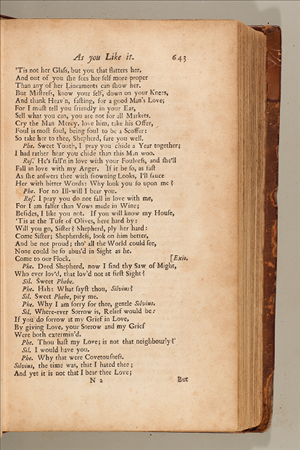 As you Like it. 643
'Tis not her Glass, but you that flatters her,
And out of you she sees her self more proper
Than any of her Lineaments can show her.
But Mistress, know your self, down on your Knees,
And thank Heav'n, fasting, for a good Man's Love;
For I must tell you friendly in your Ear,
Sell what you can, you are not for all Markets.
Cry the Man Mercy, love him, take his Offer,
Foul is most foul, being foul to be a Scoffer:
So take her to thee, Shepherd, fare you well.
Phe. Sweet Youth, I pray you chide a Year together;
I had rather hear you chide than this Man woo.
Ros. He's fall'n in love with your Foulness, and she'll
Fall in love with my Anger. If it be so, as fast
As she answers thee with frowning Looks, I'll sauce
Her with bitter Words: Why look you so upon me?
Phe. For no Ill-will I bear you.
Ros. I pray you do not fall in love with me,
For I am falser than Vows made in Wine;
Besides, I like you not. If you will know my House,
'Tis at the Tuft of Olives, here hard by:
Will you go, Sister? Shepherd, ply her hard:
Come Sister; Shepherdess, look on him better,
And be not proud; tho' all the World could see,
None could be so abus'd in Sight as he.
Come to our Flock. [Exit.
Phe. Deed Shepherd, now I find thy Saw of Might,
Who ever lov'd, that lov'd not at first Sight?
Sil. Sweet Phebe.
Phe. Hah: What sayst thou, Silvius?
Sil. Sweet Phebe, pity me.
Phe. Why I am sorry for thee, gentle Silvius.
Sil. Where-ever Sorrow is, Relief would be:
If you do sorrow at my Grief in Love,
By giving Love, your Sorrow and my Grief
Were both extermin'd.
Phe. Thou hast my Love; is not that neighbourly?
Sil. I would have you.
Phe. Why that were Covetousness.
Silvius, the time was, that I hated thee;
And yet it is not that I bear thee Love;
N 2 But